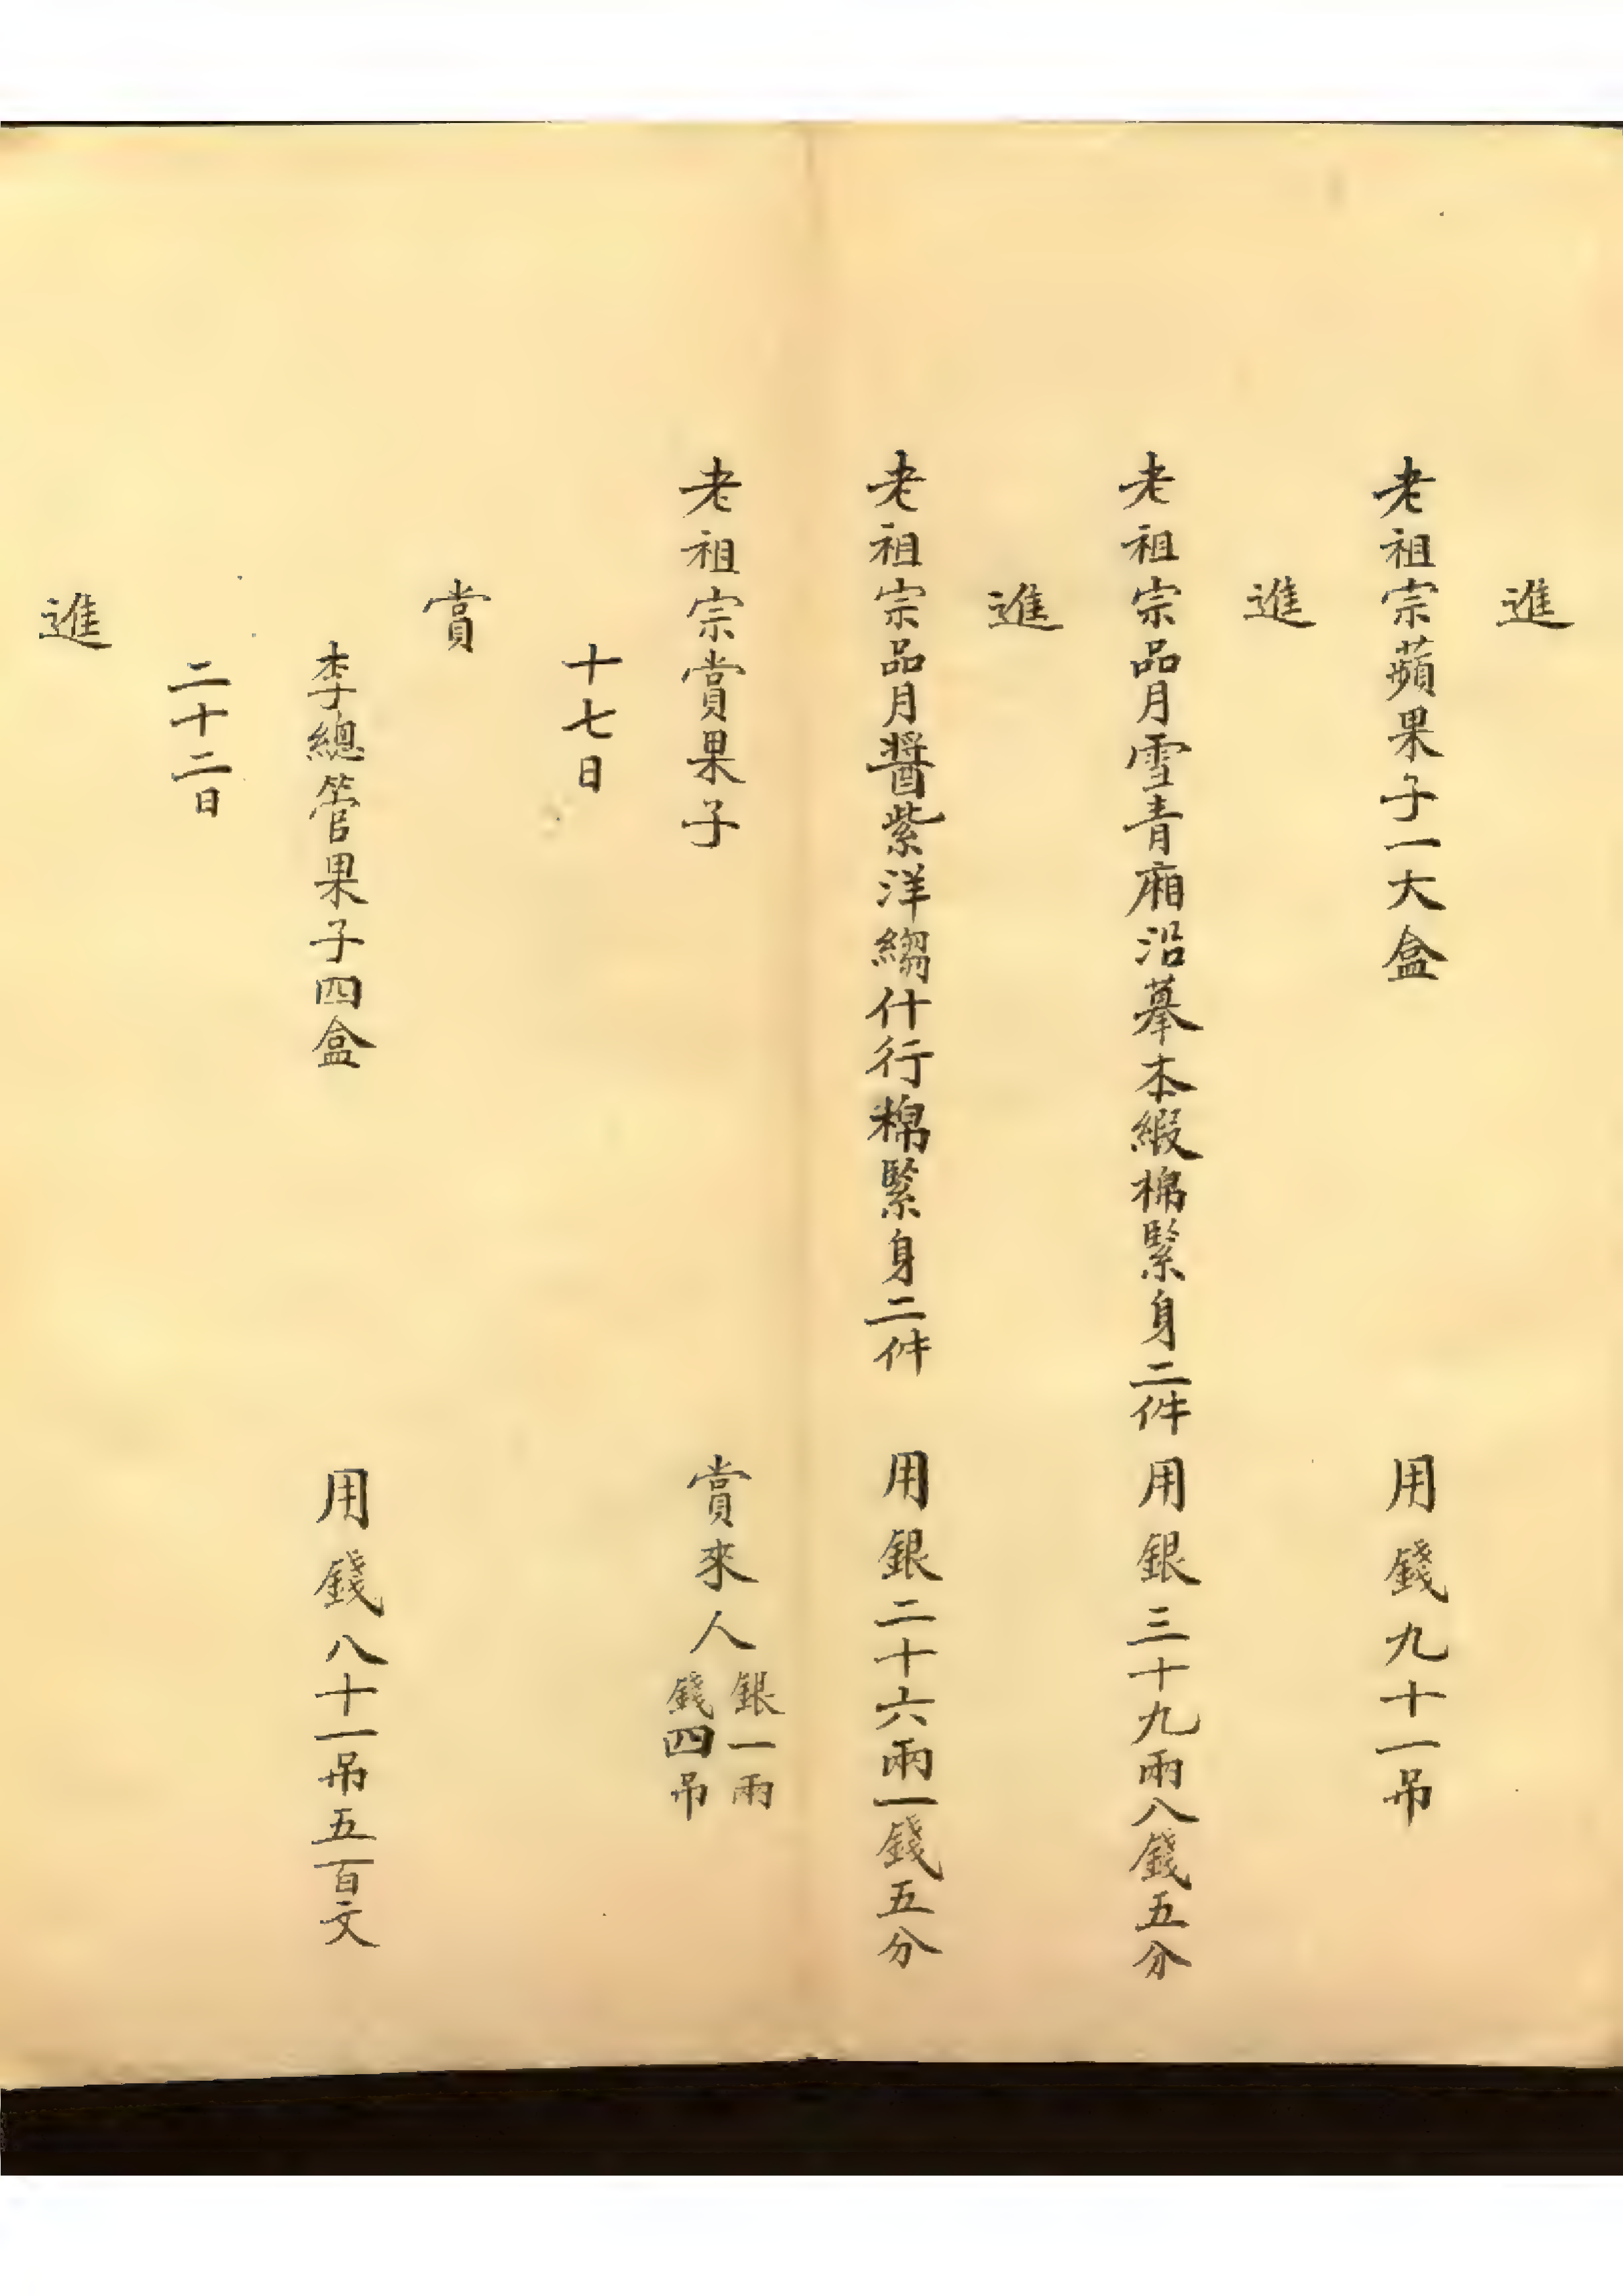 進
老祖宗蘋果子一大盒　用錢九十一吊
進
老祖宗品月雪青廂沿摹本緞棉緊身二件　用銀三十九兩八錢五分
進
老祖宗品月醬紫洋縐什行棉緊身二件　用銀二十六兩一錢五分
老祖宗賞果子　賞來人銀一兩錢四吊
十七日
賞
李總管果子四盒　用錢八十一吊五百文
二十二日
進